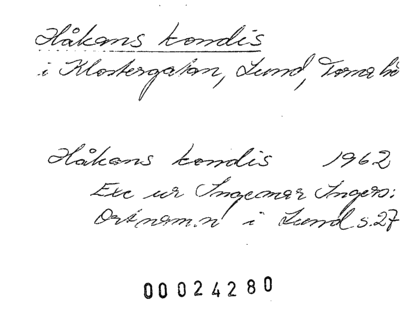 Håkans kondis
i Klostergatan, Lund, Torna hä
Håkans kondis 1962
Exc ur Ingemar Ingers:
Ortnamn i Lund s.27
00024280